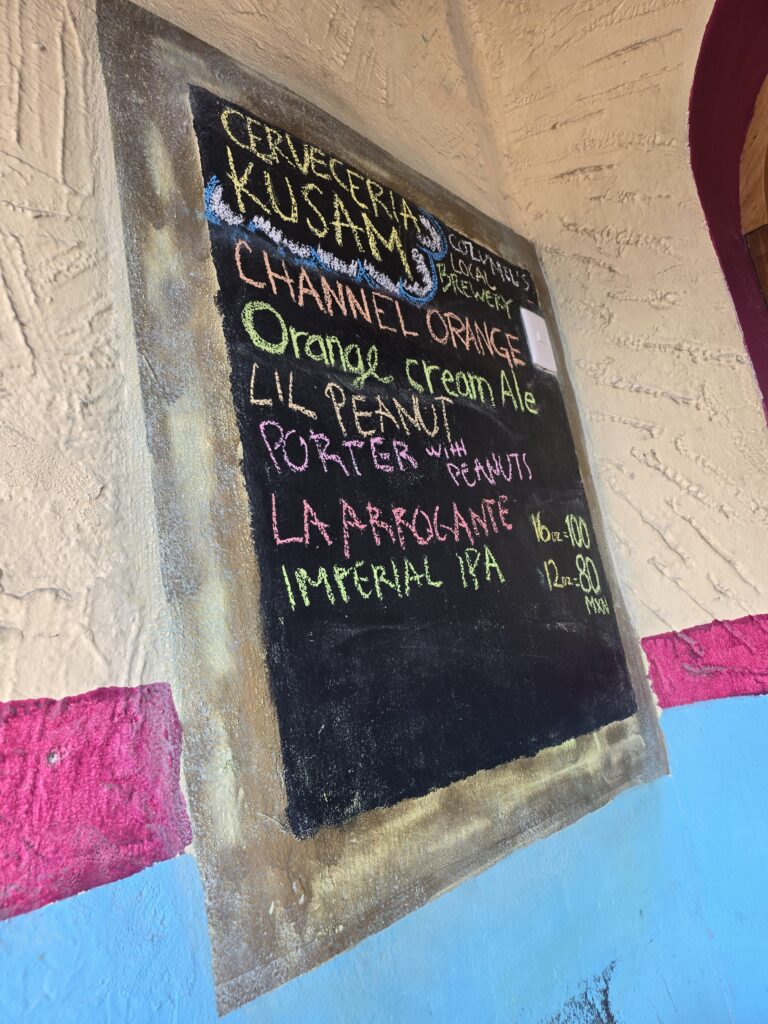 CERVECERIA
KUSAM
COZUMEL'S
LOCAL
BREWERY
CHANNEL ORANGE
Orange cream Ale
LIL PEANUT
PORTER WITH
PEANUTS
LA ARROGANTE
IMPERIAL IPA
16oz-100
12oz-80
MXN